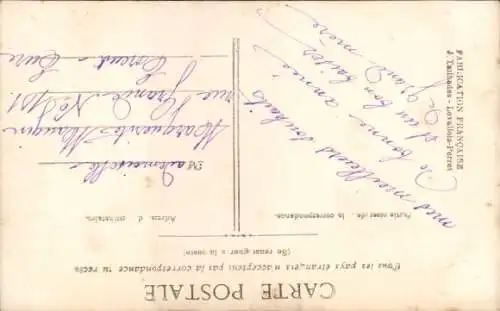 CARTE POSTALE
Tous les pays étrangers n'acceptent pas la correspondance au recto
(Se renseigner à la poste)
Partie réservée à la correspondance.
Adresse du destinataire.
mes meilleurs souhaits
de bonne année
et un bon baiser
Grand mère
Mademoiselle
Marguerite Maugin
rue Grande No 101
Eure
FABRICATION FRANÇAISE
J. Tailhades - Levallois-Perret